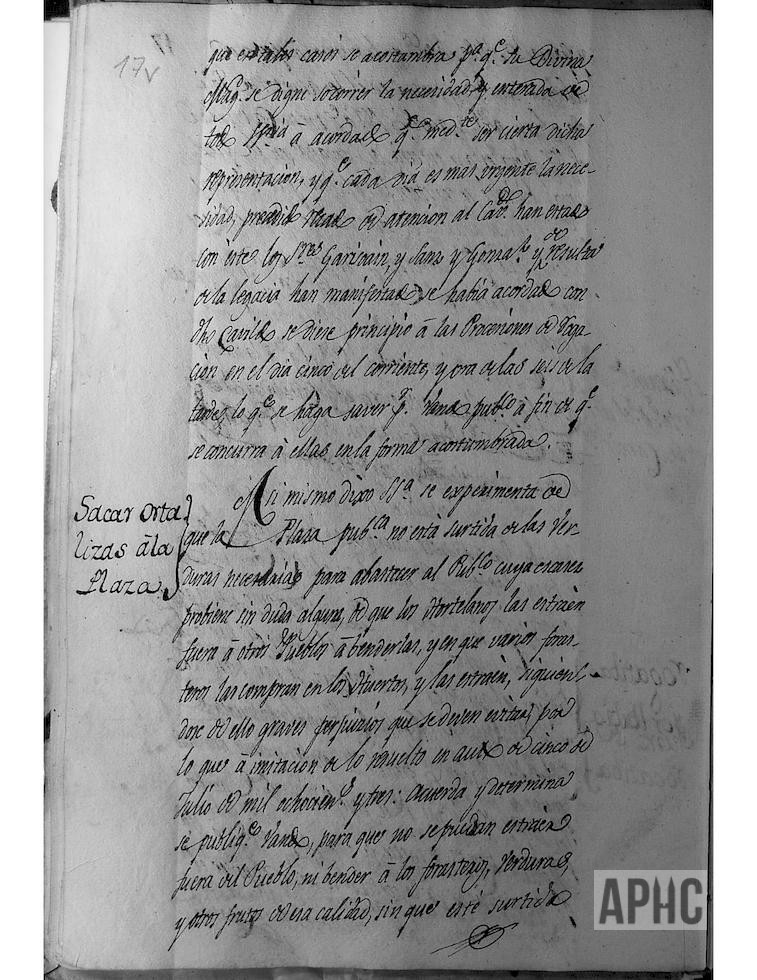 17v
que en tales casos se acostumbra pa. qe. su Divina
Mag. se digne socorrer la necesidad, y enterada de
todo Ssria. à acordado qe. medte. ser cierta dicha
representacion, y qe. cada dia es mas urgente la nece-
sidad, recado de atencion al Cavdo. han estado
con este los Sres. Garicain, y Sanz y Gonzaz. y de resulta
de la legacia han manifestado se habia acordado con
dho Cavildo se diese principio à las Procesiones de Roga-
cion en el dia cinco del corriente, y ora de las seis de la
tarde, lo qe. se haga saver pr. Vando pubco. à fin de qe.
se concurra à ellas en la forma acostumbrada.
Sacar orta
lizas â la
Plaza
Asi mismo dixo SSa. se experimenta de
que la Plaza pubca. no està surtida de las Ver-
duras necesarias para abastecer al Pubco. cuya escasez
probiene sin duda alguna, de que los Hortelanos las extraen
fuera à otros Pueblos à benderlas, y en que varios foras-
teros las compran en los Huertos, y las extraen, siguien-
dose de ello graves perjuizios que se deven evitar, por
lo que à imitacion de lo resuelto en auto de cinco de
Julio de mil ochocientos. y tres: acuerda y determina
se publiqe. Vando, para que no se puedan extraer
fuera del Pueblo, ni bender à los forasteros, Verduras,
y otros frutos de esa calidad, sin que esté surtida
APHC